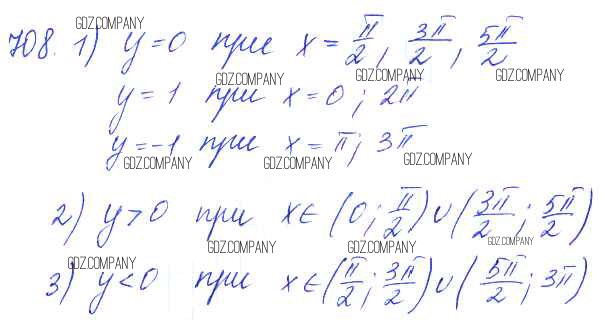 GDZ.COMPANY
708. 1) y=0 при x = π/2, 3π/2, 5π/2
GDZ.COMPANY GDZ.COMPANY GDZ.COMPANY
y = 1 при x = 0; 2π
y = -1 при x = π; 3π
GDZ.COMPANY GDZ.COMPANY GDZ.COMPANY
2) y > 0 при x ∈ (0; π/2) ∪ (3π/2; 5π/2)
GDZ.COMPANY GDZ.COMPANY GDZ.COMPANY
GDZ.COMPANY
3) y < 0 при x ∈ (π/2; 3π/2) ∪ (5π/2; 3π)